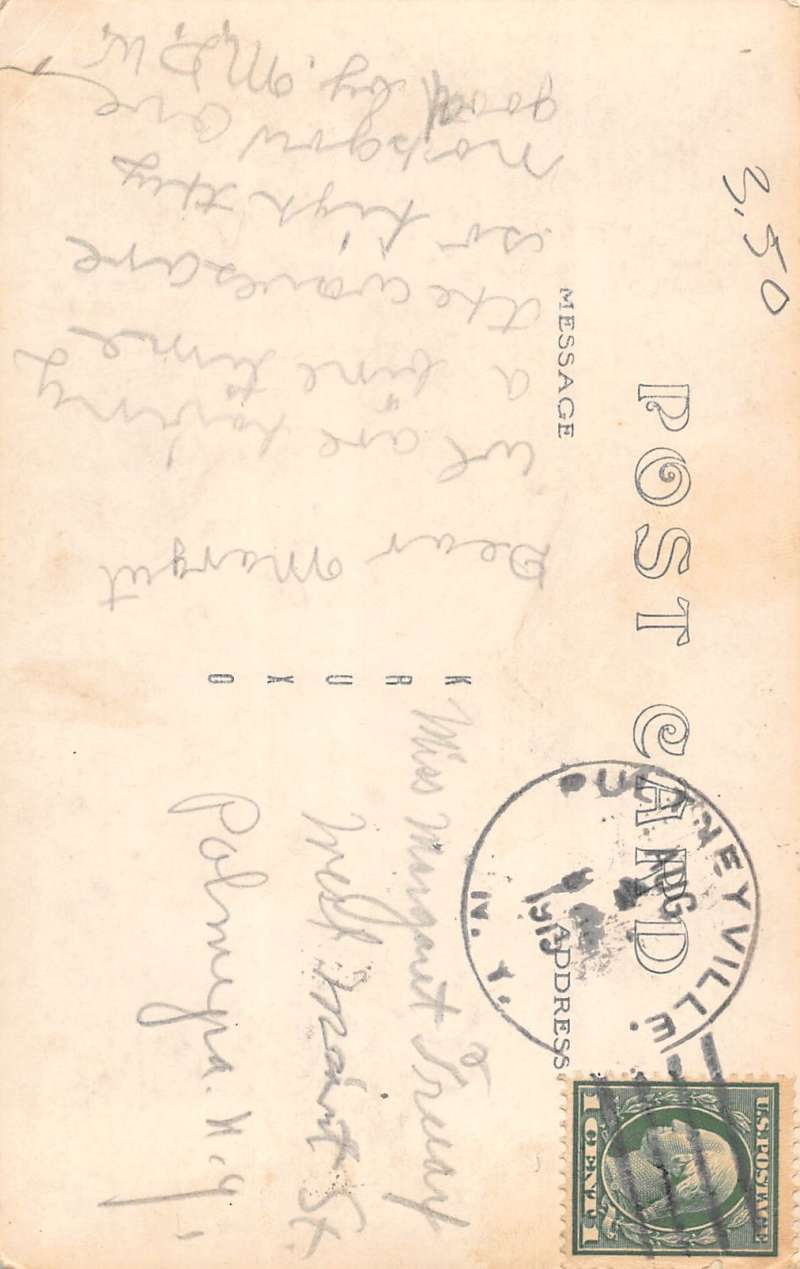 POST CARD
MESSAGE
ADDRESS
3.50
Dear Margret
we are having
a fine time
the waves are
so high they
nobgow are
good by. M.D.W.
K
R
U
X
O
Miss Margaret
West Maint St.
Palmyra. N.Y.
PULTNEYVILLE.
AUG
1913
N.Y.
U.S. POSTAGE
1 CENT 1